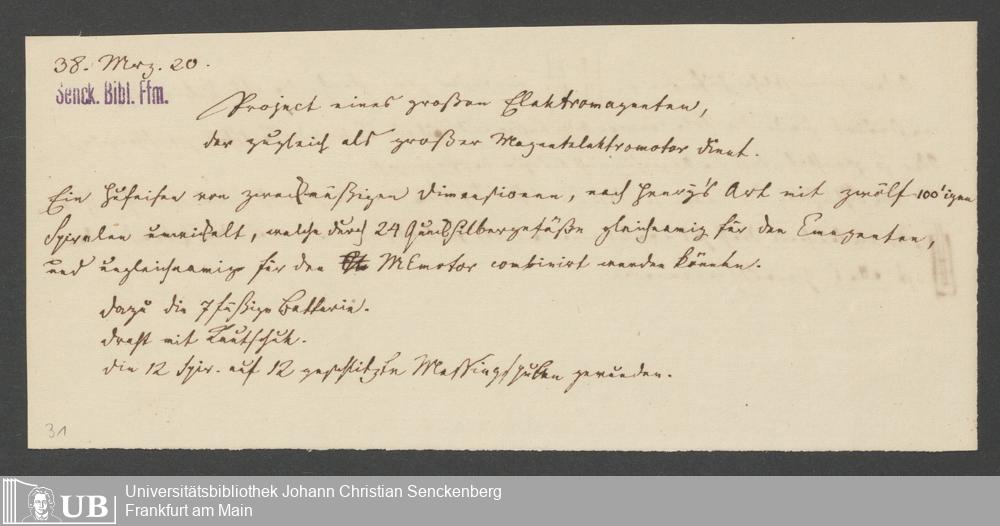 38. Mrz. 20.
Senck. Bibl. Ffm.
Project eines großen Elektromagneten,
der zugleich als großer Magnetelektromotor dient.
Ein Hufeisen von zweckmäßigen Dimensionen, nach Henry's Art mit zwölf 100'igen
Spiralen umwickelt, welche durch 24 Quecksilbergefäße gleichnamig für den Emagneten,
und ungleichnamig für den MEmotor combinirt werden könnten.
dazu die 7füßige Batterie.
Draht mit Kautschuk.
die 12 Spir. auf 12 geschlitzten Messinghülsen gewunden.
31
UB
Universitätsbibliothek Johann Christian Senckenberg
Frankfurt am Main